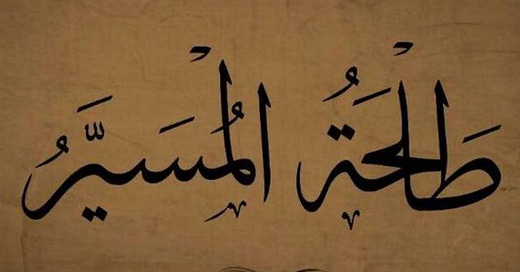 طَلْحَةُ الْمُسَيَّرُ